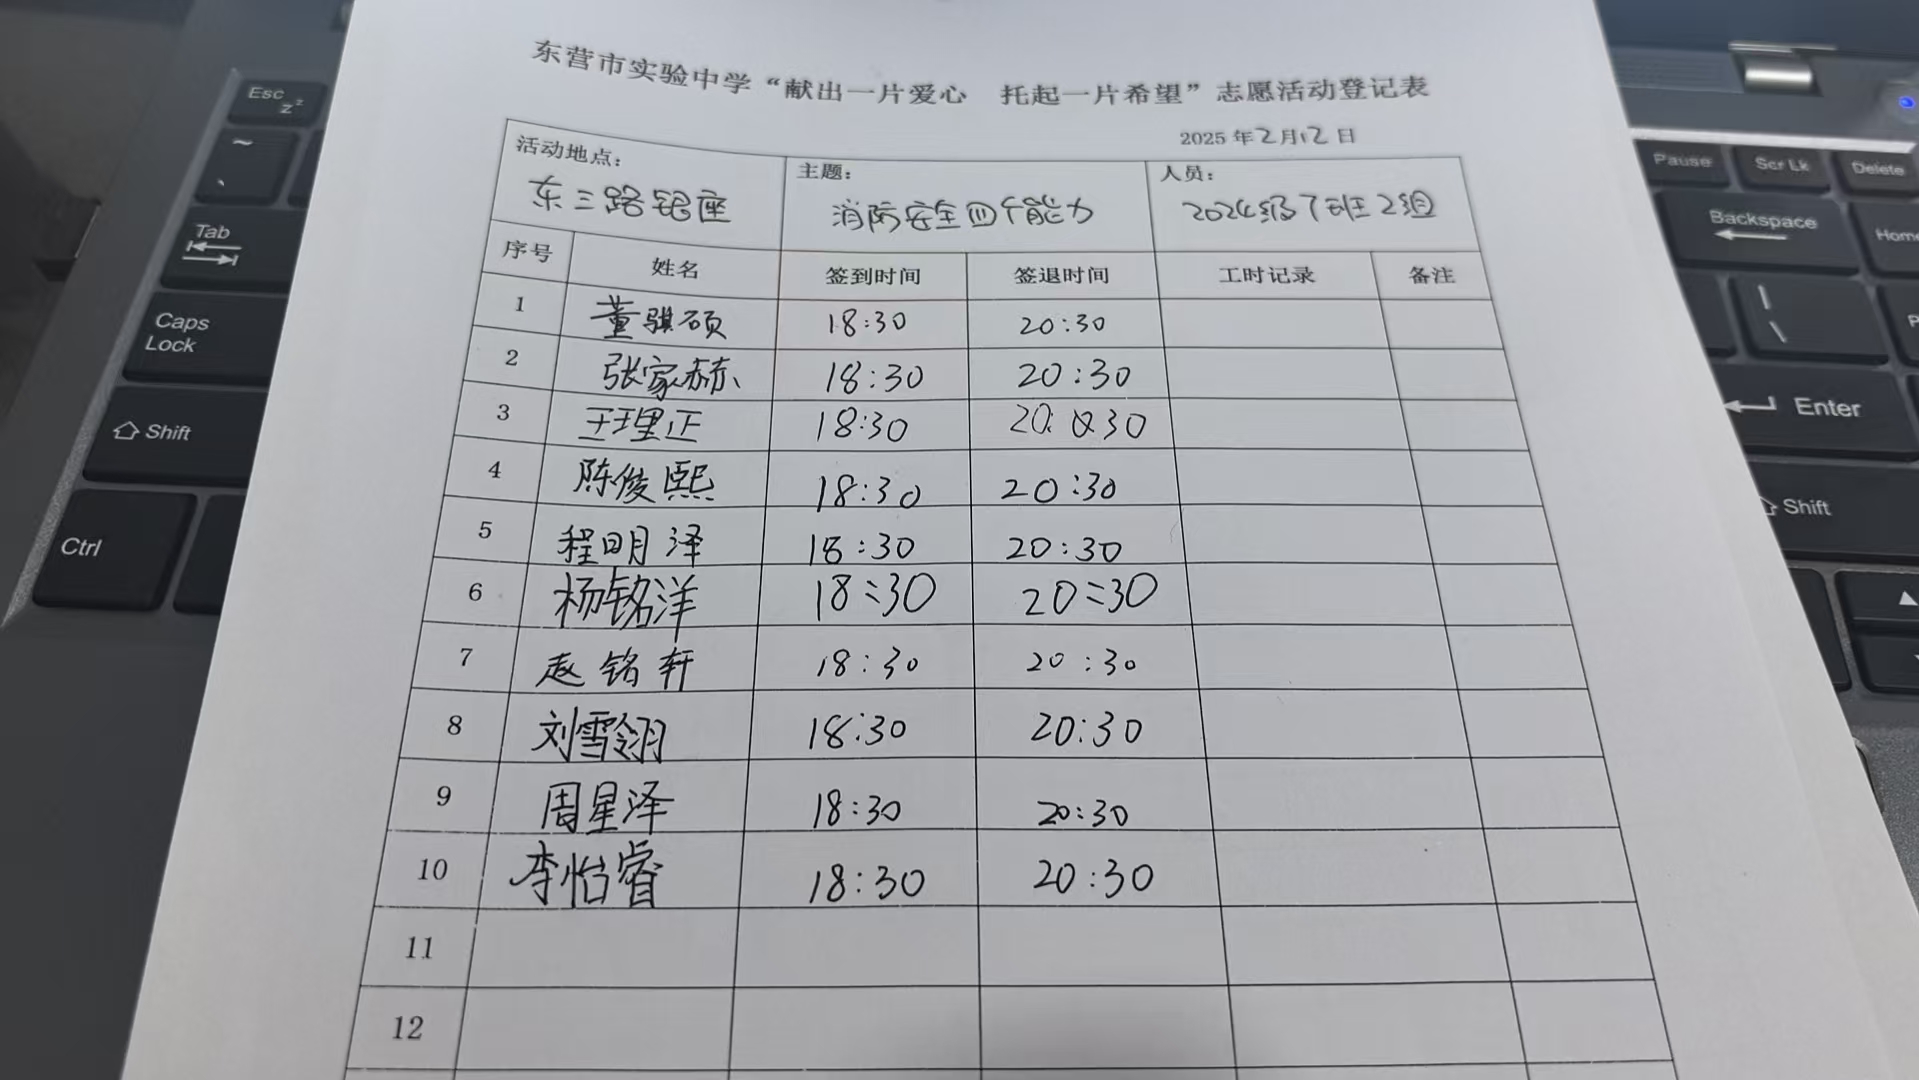 东营市实验中学“献出一片爱心 托起一片希望”志愿活动登记表
2025年2月12日
活动地点： 主题： 人员：
东三路银座 消防安全四个能力 2024级7班2组
序号 姓名 签到时间 签退时间 工时记录 备注
1 董骐硕 18:30 20:30
2 张家赫 18:30 20:30
3 王理正 18:30 20:30
4 陈俊熙 18:30 20:30
5 程明泽 18:30 20:30
6 杨铭洋 18:30 20:30
7 赵铭轩 18:30 20:30
8 刘雪翎 18:30 20:30
9 周星泽 18:30 20:30
10 李怡睿 18:30 20:30
11
12
Esc
Tab
Caps Lock
Shift
Ctrl
Pause Scr Lk Delete
Backspace Home
Enter
Shift